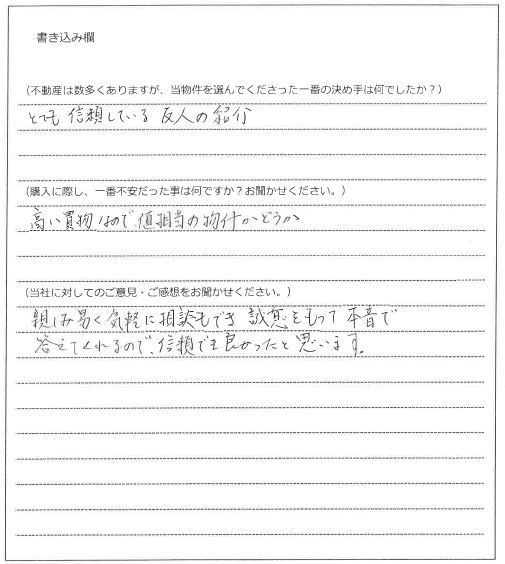 書き込み欄
(不動産は数多くありますが、当物件を選んでくださった一番の決め手は何でしたか？)
とても 信頼している 友人の紹介
(購入に際し、一番不安だった事は何ですか？お聞かせください。)
高い買物なので、値相当の物件かどうか
(当社に対してのご意見・ご感想をお聞かせください。)
親しみ易く気軽に相談もでき 誠意をもって 本音で
答えてくれるので、信頼でき良かったと思います。